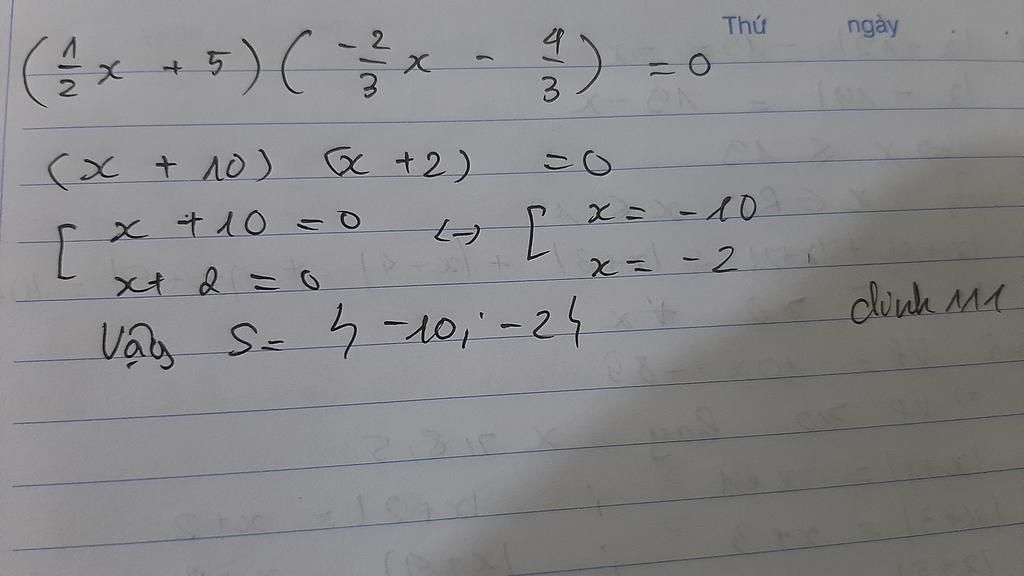 Thứ ngày
(1/2 x + 5) (-2/3 x - 4/3) = 0
(x + 10) (x + 2) = 0
[ x + 10 = 0 ↔ [ x = -10
x + 2 = 0 x = -2
Vậy S = { -10; -2 }